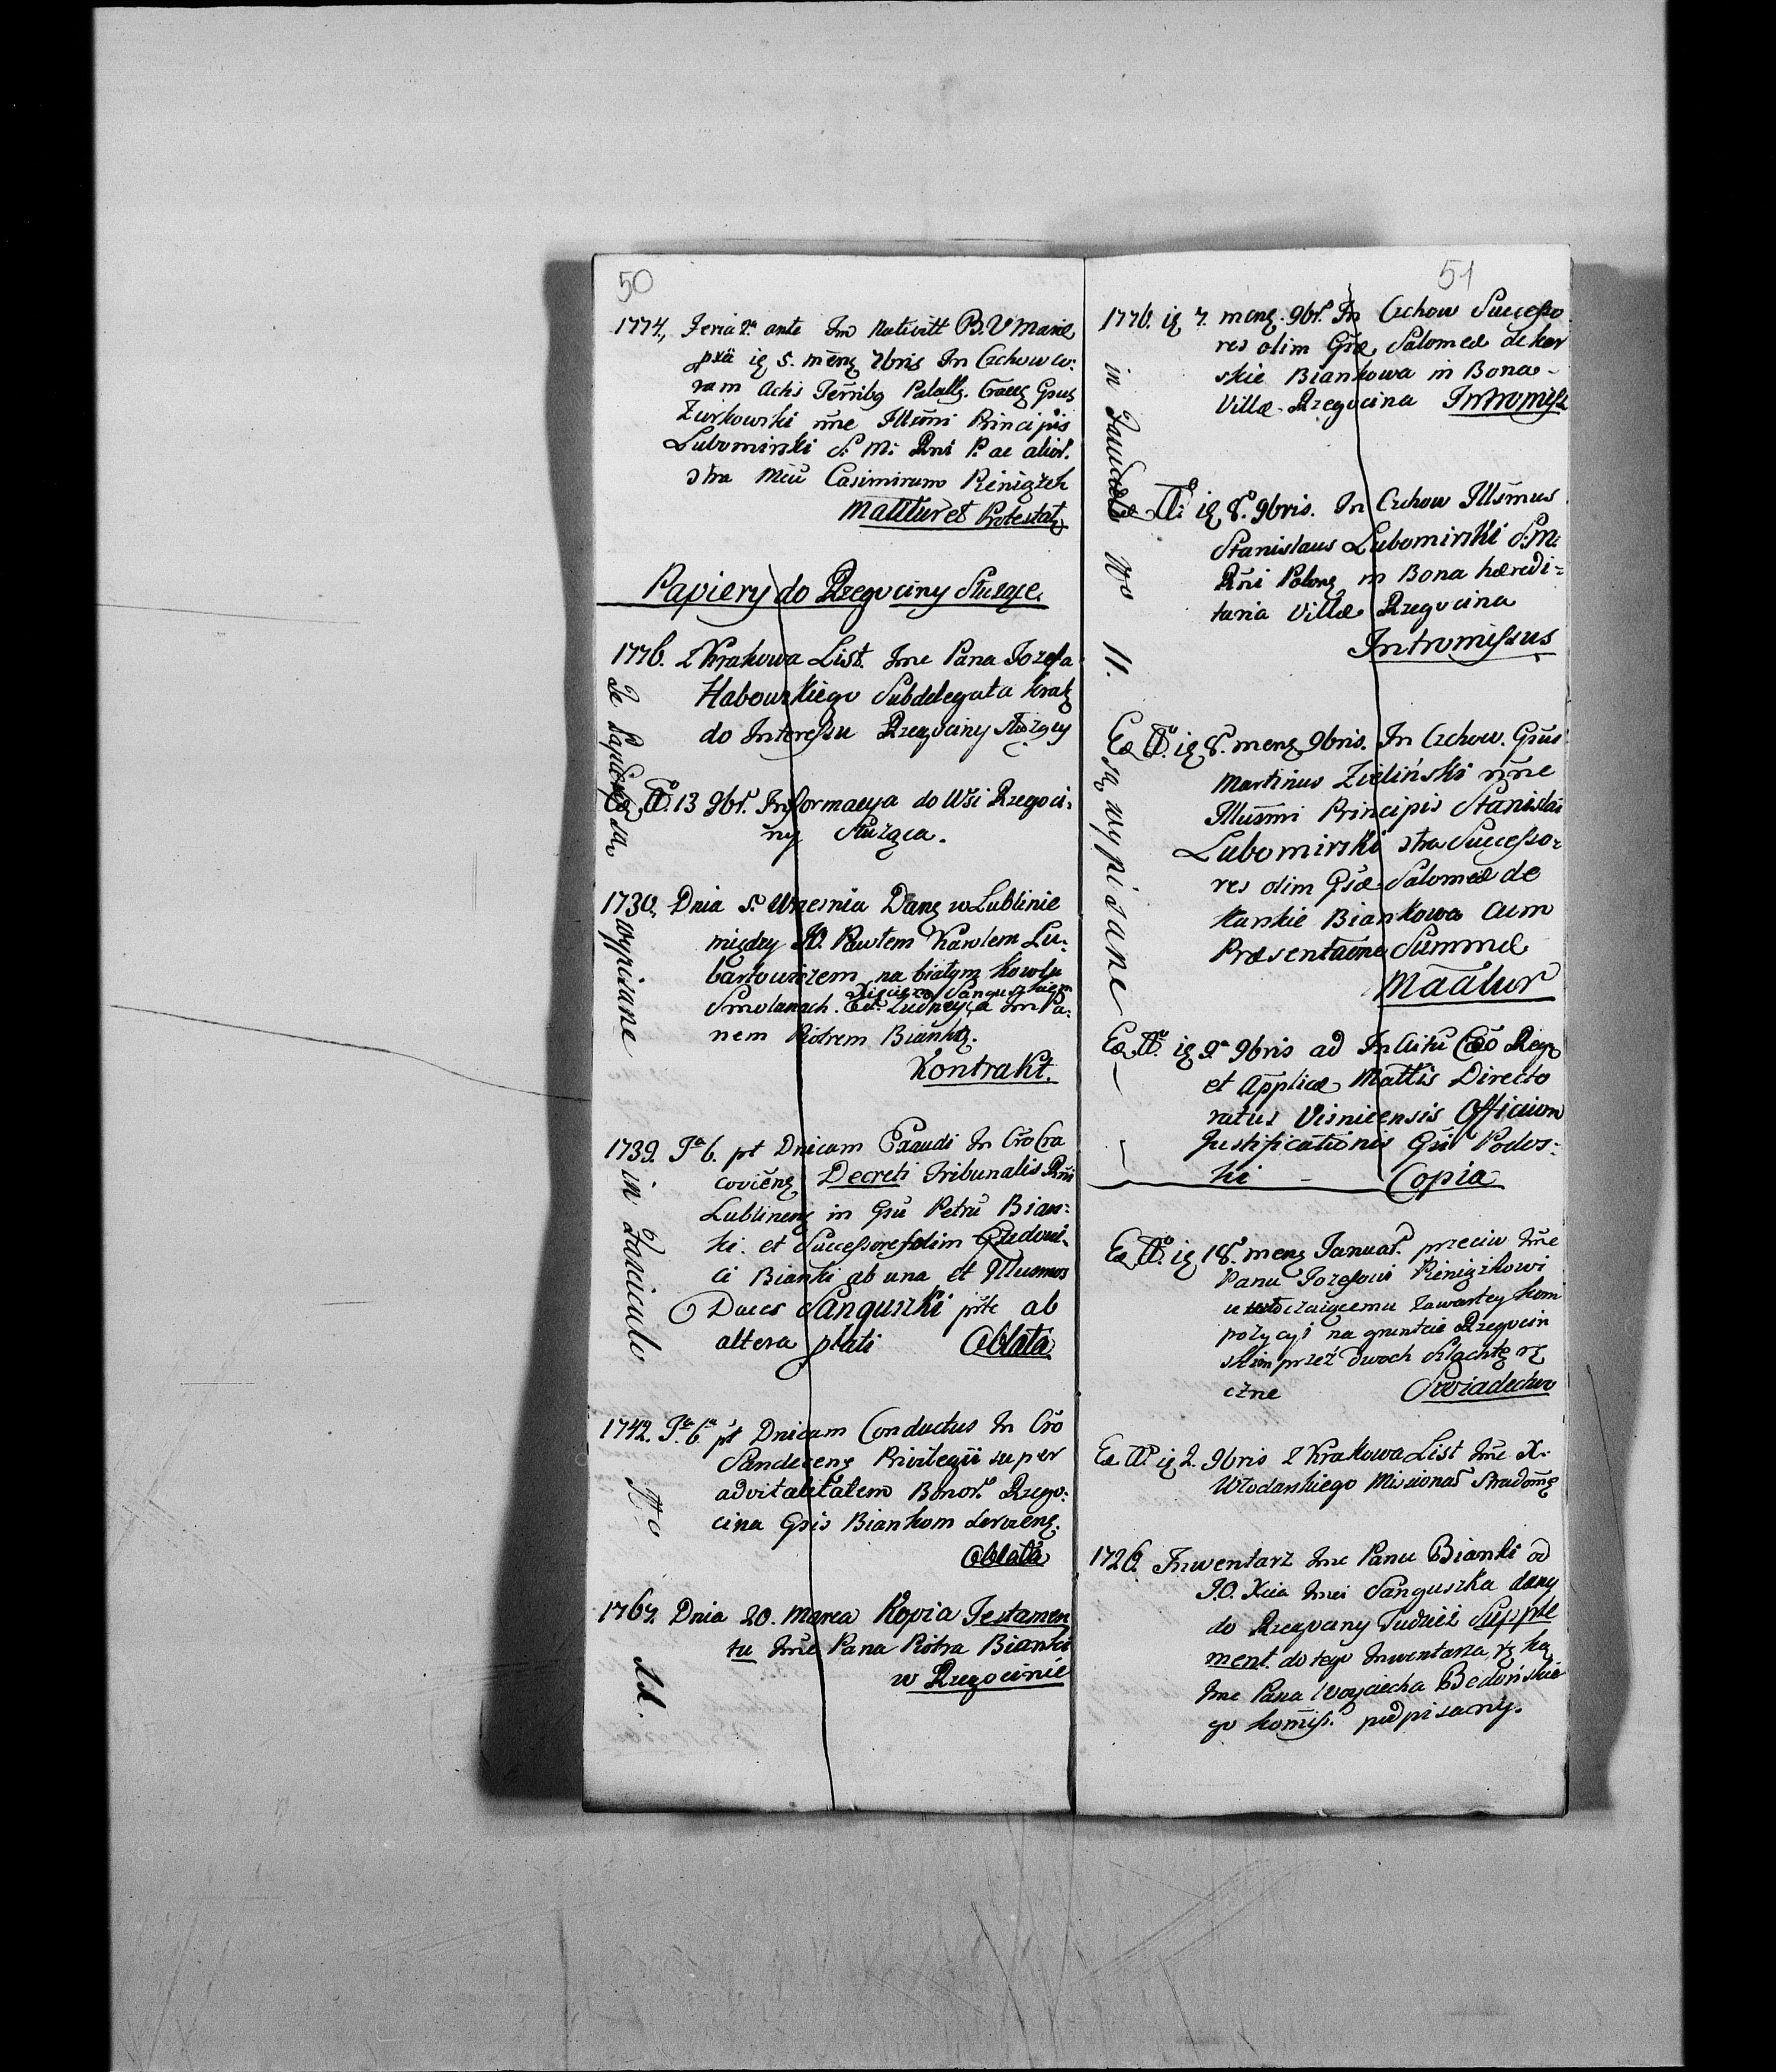 50
1774, Feria 2ª ante Fm Nativitt B. V Mariæ
pxã ię 5. menę 7bris In Czchow co:
ram Actis Terribꝰ Palattę. Cracę Gsus
Żurkowski nñe Illsmi Principis
Lubomirski S. M: Rni P. ac alior.
ɔtra Mcu Casimirum Reniążek
Mattur et Protestatę
Papiery do Rzegociny Służące.
1776. z Krakowa List. Jme Pana Jozefa
Habowskiego Subdelegata Krakę
do Interessu Rzegociny służący
Eō Aº. 13 9br. Informacya do Wsi Rzegoci:
ny Służąca.
1730, Dnia 5. Wrzesnia Dany w Lublinie
między JO. Pawłem Karolem Lu:
bartowiczem na białym Kowlu
Xiążęcia Sanguszkiem
Smolanach. Ludney, a Jm Pa:
nem Piotrem Bianką.
Kontrakt.
1739. Fª 6. pt Dnicam Exaudi In Cro Cra
covienę Decreti Tribunalis Rni
Lublinenę in Gsu Petru Bian:
ki. et Successores olim Ludovi:
ci Bianki ab una et Illusmos
Duces Sanguszki pte ab
altera pãti Oblata
1742. Fª 6ª pt Dnicam Conductus In Cro
Sandecenę Privilegii super
advitalitatem Bonor. Rzego:
cina Gsis Biankom servienę.
Oblata
1767. Dnia 20. Marca Kopia Testamen
tu Jme Pana Piotra Bianki
w Rzegocinie
Te Papiery są wypisane in Fasciculo No 11.
51
1776. ię 7. menę. 9br. In Czchow Successo
res olim Gsæ Salomeæ de Kar
skie Biankowa in Bona
Villæ Rzegocina Intromissi
Eō Aº. ię 8. 9bris. In Czchow Illsmus
Stanislaus Lubomirski S. M:
Rñi Polonę in Bona hæredi=
taria Villæ Rzegocina
Intromissus
Eō Aº. ię 8. menę 9bris. In Czchow. Gsus
Martinus Zieliński nñe
Illusmi Principis Stanislai
Lubomirski ɔtra Successo=
res olim Gsæ Salomeæ de
Karskie Biankowa cum
Præsentaõne Summæ
Maatur
Eō Aº. ię 9ª 9bris ad Institu Cæo Reg
et Appliæ Mattis Directo
ratus Visnicensis Officium
Justificationis Gsi Podos:
ki - Copia
Eō Aº. ię 18. menę Januar. przeciw Jme
Panu Jozefowi Reniążkowi
zawartey Kom
pozycyi na gruncie Rzegocin
skim przez dwoch Szlachtę rę
czne Swiadectwo
Eō Aº. ię 2. 9bris z Krakowa List Jme X.
Włodarskiego Misionar Stradomę
1726. Inwentarz Jme Panu Bianki od
J.O. Xcia Jmci Sanguszka dany
do Rzegociny Tudzież Supple
ment. do tego Inwentarza ręką
Jme Pana Woyciecha Bedońskie
go Komiss. podpisany.
in Fasciculo No 11. są wypisane